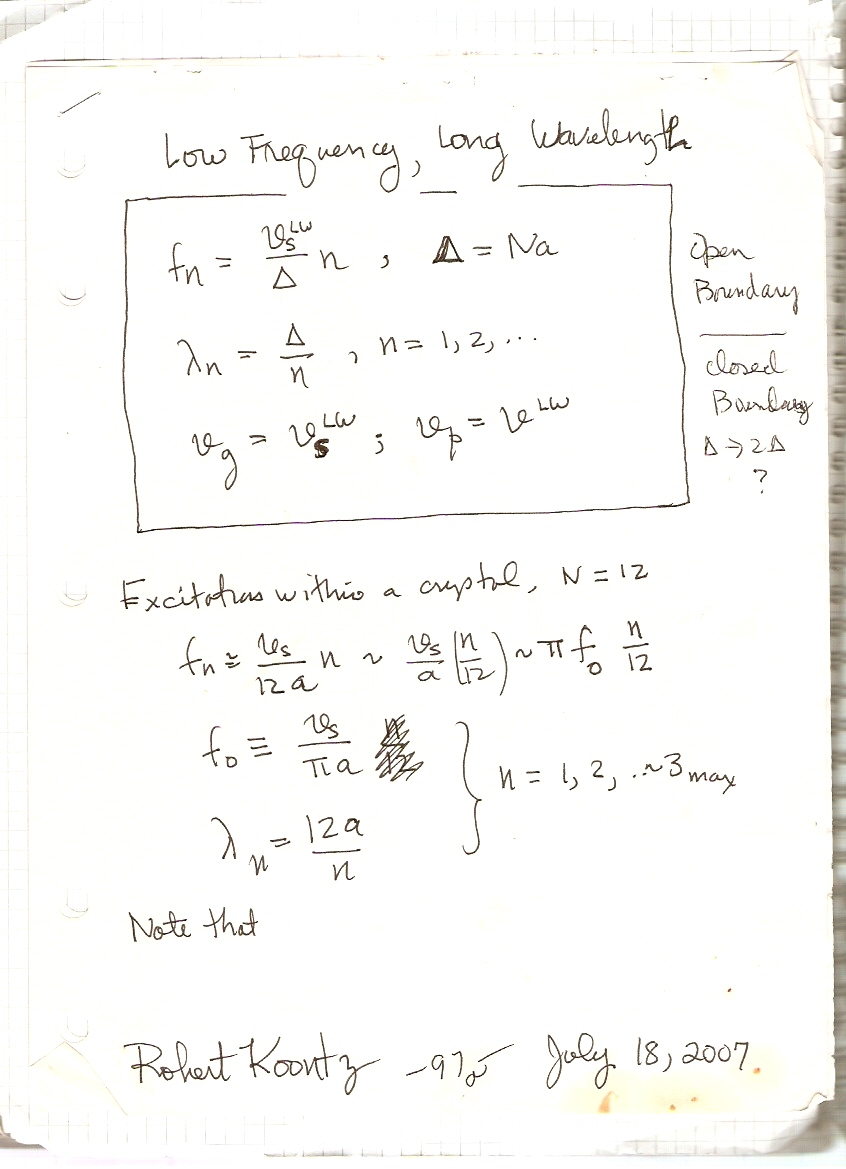 Low Frequency, Long Wavelength
fₙ = vₛᴸᵂ/Δ n , Δ = Na
λₙ = Δ/n , n = 1, 2, ...
v_g = vₛᴸᵂ ; vₚ = vᴸᵂ
Open
Boundary
closed
Boundary
Δ → 2Δ
?
Excitations within a crystal, N = 12
fₙ ≅ vₛ/12a n ~ vₛ/a (n/12) ~ π f₀ n/12
f₀ ≡ vₛ/πa
λₙ = 12a/n
n = 1, 2, ..~3 max
Note that
Robert Koontz July 18, 2007